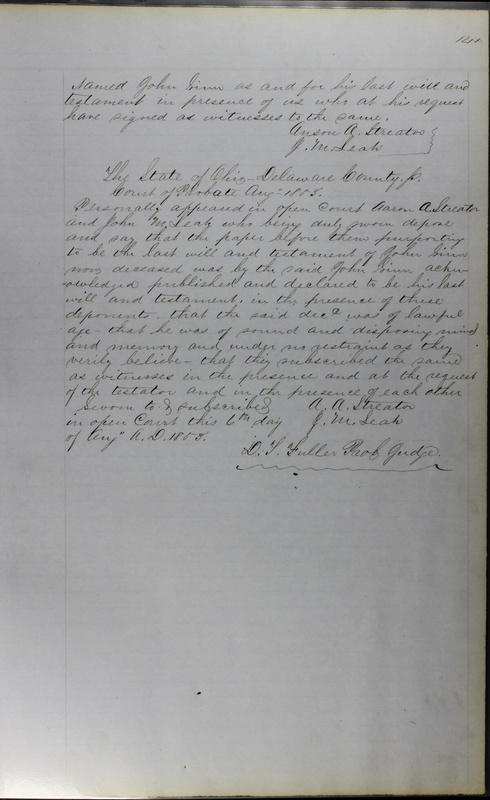 Named John Ginn as and for his last will and
testament in presence of us who at his request
have signed as witnesses to the same.
Anson A. Streator
J. M. Leak
The State of Ohio Delaware County, ss.
Court of Probate Aug 1853.
Personally appeared in open Court Aaron A. Streator
and John M. Leak who being duly sworn depose
and say that the paper before them purporting
to be the last will and testament of John Ginn
now deceased was by the said John Ginn ackn-
owledged published and declared to be his last
will and testament, in the presence of these
deponents. that the said decd was of lawful
age - that he was of sound and disposing mind
and memory and under no restraint as they
verily believe - that they subscribed the same
as witnesses in the presence and at the request
of the testator and in the presence of each other
Sworn to & subscribed A. A. Streator
in open Court this 6th day J. M. Leak
of Aug" A. D. 1853.
D. T. Fuller Prob Judge.